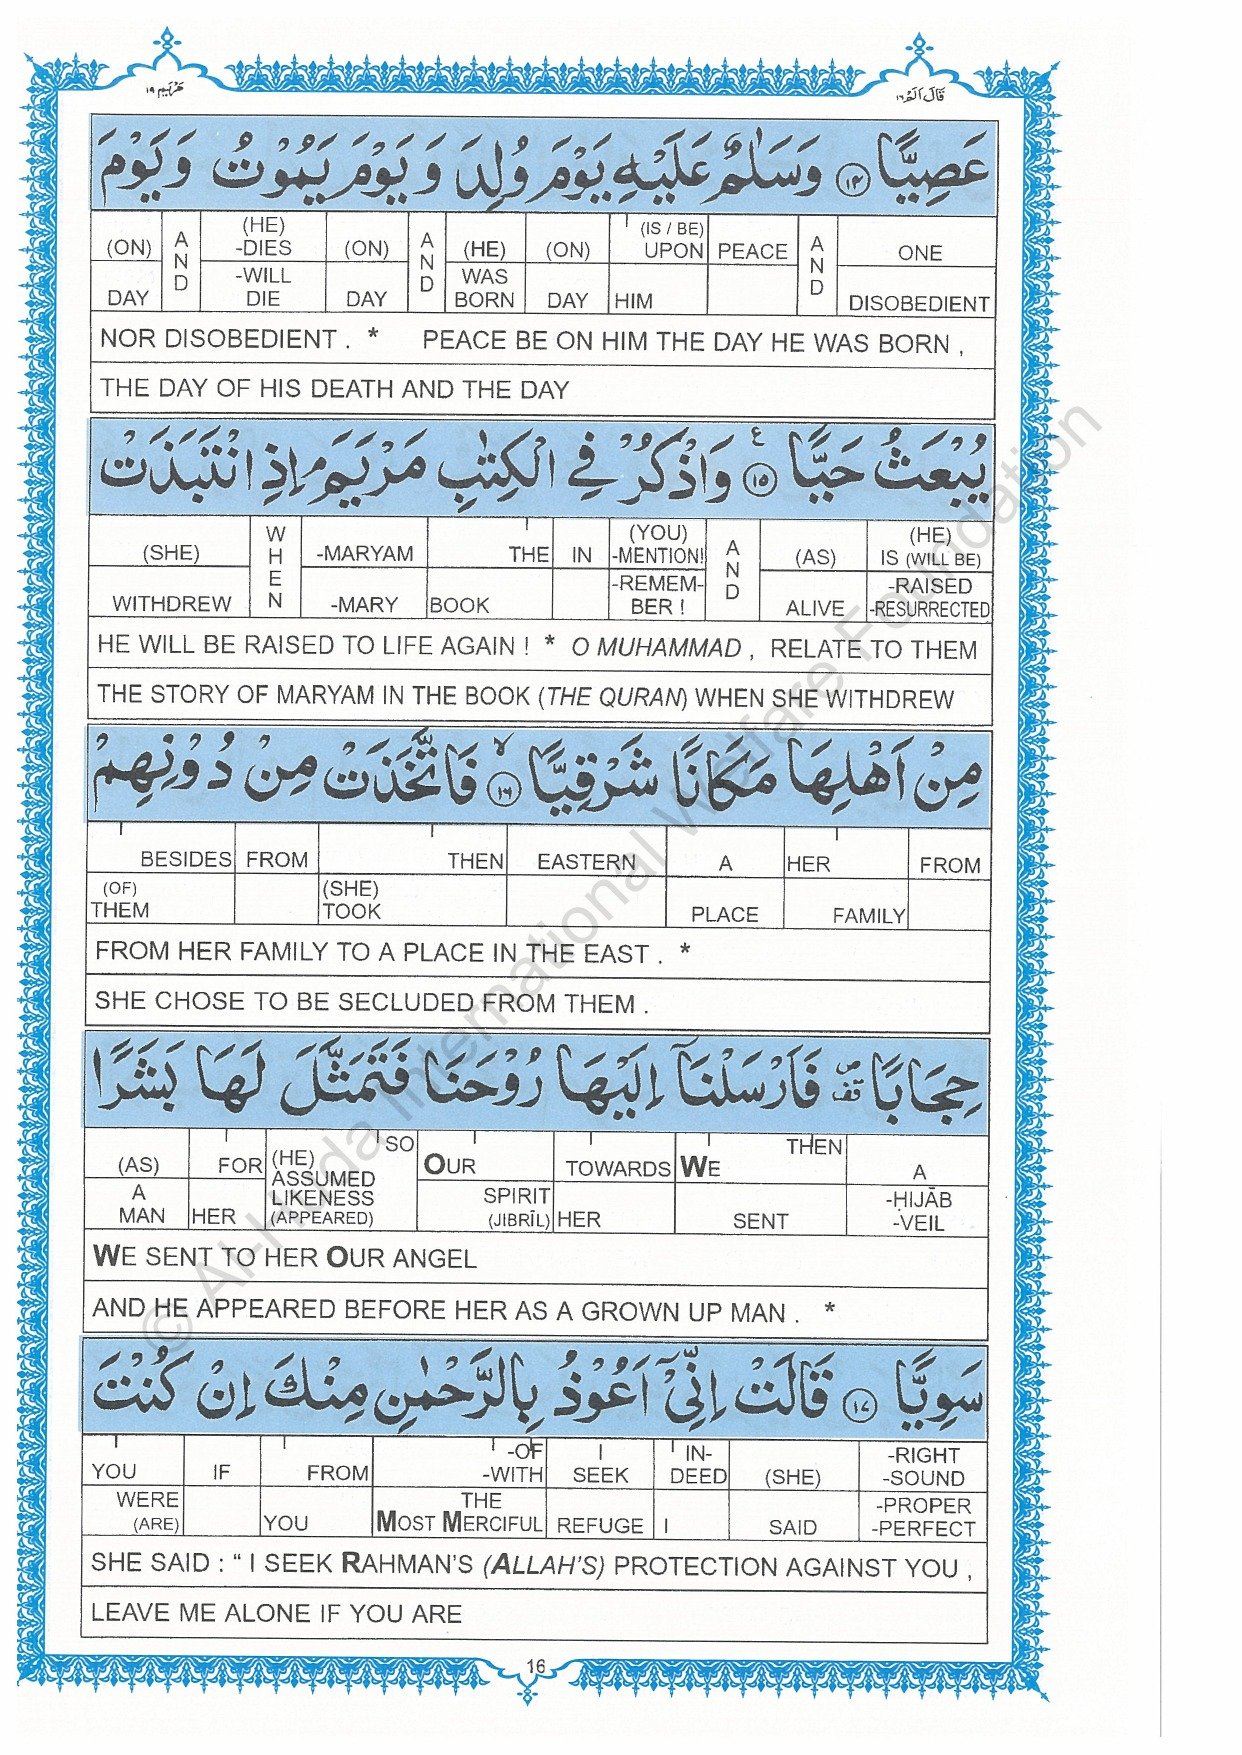 مَرْيَم ١٩
قَالَ اَلَمْ ١٦
عَصِيًّا ﴿١٤﴾ وَسَلٰمٌ عَلَيْهِ يَوْمَ وُلِدَ وَيَوْمَ يَمُوْتُ وَيَوْمَ
(ON) AND (HE) -DIES (ON) AND (HE) (ON) (IS / BE) UPON PEACE AND ONE
DAY -WILL DIE DAY WAS BORN DAY HIM DISOBEDIENT
NOR DISOBEDIENT . * PEACE BE ON HIM THE DAY HE WAS BORN ,
THE DAY OF HIS DEATH AND THE DAY
يُبْعَثُ حَيًّا ﴿١٥﴾ ع وَاذْكُرْ فِي الْكِتٰبِ مَرْيَمَ م اِذِ انْتَبَذَتْ
(SHE) WHEN -MARYAM THE IN (YOU) -MENTION! AND (AS) (HE) IS (WILL BE)
WITHDREW -MARY BOOK -REMEM- BER ! ALIVE -RAISED -RESURRECTED
HE WILL BE RAISED TO LIFE AGAIN ! * O MUHAMMAD , RELATE TO THEM
THE STORY OF MARYAM IN THE BOOK (THE QURAN) WHEN SHE WITHDREW
مِنْ اَهْلِهَا مَكَانًا شَرْقِيًّا ﴿١٦﴾ لا فَاتَّخَذَتْ مِنْ دُوْنِهِمْ
BESIDES FROM THEN EASTERN A HER FROM
(OF) THEM (SHE) TOOK PLACE FAMILY
FROM HER FAMILY TO A PLACE IN THE EAST . *
SHE CHOSE TO BE SECLUDED FROM THEM .
حِجَابًا قف فَاَرْسَلْنَآ اِلَيْهَا رُوْحَنَا فَتَمَثَّلَ لَهَا بَشَرًا
(AS) FOR (HE) SO ASSUMED LIKENESS (APPEARED) OUR TOWARDS WE THEN A
A MAN HER SPIRIT (JIBRĪL) HER SENT -ḤIJĀB -VEIL
WE SENT TO HER OUR ANGEL
AND HE APPEARED BEFORE HER AS A GROWN UP MAN . *
سَوِيًّا ﴿١٧﴾ قَالَتْ اِنِّيْٓ اَعُوْذُ بِالرَّحْمٰنِ مِنْكَ اِنْ كُنْتَ
YOU IF FROM -OF -WITH I SEEK IN- DEED (SHE) -RIGHT -SOUND
WERE (ARE) YOU THE MOST MERCIFUL REFUGE I SAID -PROPER -PERFECT
SHE SAID : “ I SEEK RAHMAN’S (ALLAH’S) PROTECTION AGAINST YOU ,
LEAVE ME ALONE IF YOU ARE
16
© Al-Huda International Welfare Foundation